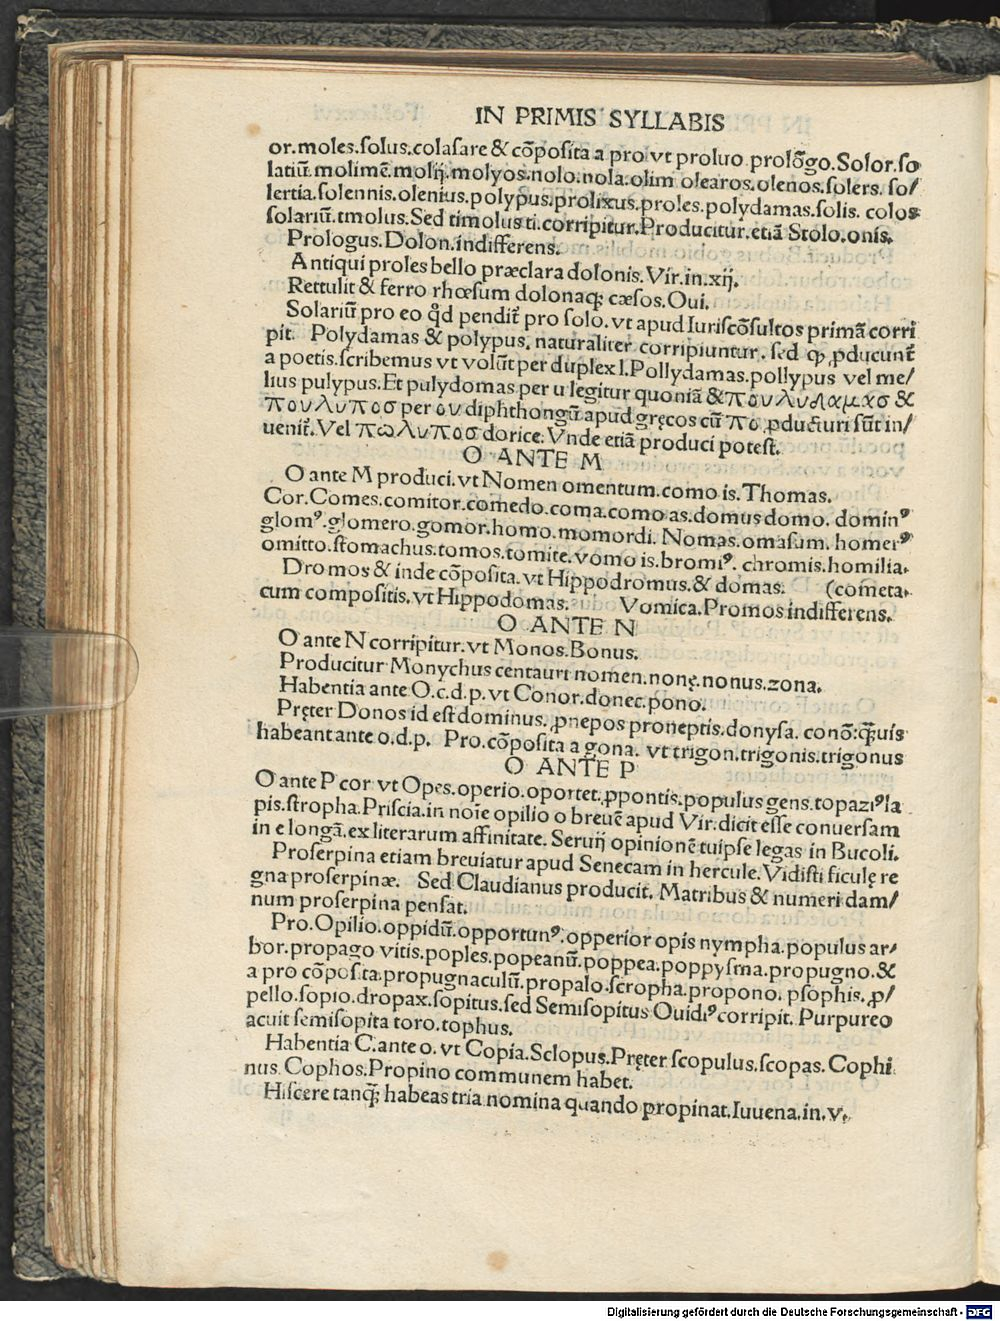 IN PRIMIS SYLLABIS
or.moles.solus.colasare & cōposita a pro vt proluo prolōgo.Solor.so
latiū.molimē.molij.molyos.nolo.nola.olim olearos.olenos.solers.so/
lertia.solennis.olenius.polypus.prolixus.proles.polydamas.solis. colos
solariū.tmolus.Sed timolus ti.corripitur.Producitur.etiā Stolo.onis.
Prologus.Dolon.indifferens.
Antiqui proles bello præclara dolonis.Vir.in.xij.
Rettulit & ferro rhœsum dolonaq; cæsos.Oui.
Solariū pro eo qd pendit pro solo.vt apud Iuriscōsultos primā corri
pit. Polydamas & polypus.naturaliter corripiuntur. sed ꝙ ꝓducunt
a poetis.scribemus vt volūt per duplex l.Pollydamas.pollypus vel me/
lius pulypus.Et pulydomas per u legitur quoniā & πουλυδαμασ &
πουλυποσ per ου diphthongū apud gręcos cū πο ꝓducturi sūt in/
uenit.Vel πωλυποσ dorice.Vnde etiā produci potest.
O ANTE M
O ante M produci.vt Nomen omentum.como is.Thomas.
Cor.Comes.comitor.comedo.coma.como as.domus domo. dominꝰ
glomꝰ.glomero.gomor.homo.momordi. Nomas.omasum. homerꝰ
omitto.stomachus.tomos.tomite.vomo is.bromiꝰ. chromis.homilia.
Dromos & inde cōposita.vt Hippodromus.& domas. (cometa.
cum compositis.vt Hippodomas. Vomica.Promos indifferens.
O ANTE N
O ante N corripitur.vt Monos.Bonus.
Producitur Monychus centauri nomen.nonę.nonus.zona.
Habentia ante O.c.d.p.vt Conor.donec.pono.
Pręter Donos id est dominus. ꝓnepos proneptis.donysa. conō:quis
habeant ante o.d.p. Pro.cōposita a gona. vt trigon.trigonis.trigonus
O ANTE P
O ante P cor vt Opes.operio.oportet.ꝓpontis.populus gens.topaziꝰla
pis.stropha.Priscia.in noīe opilio o breuē apud Vir.dicit esse conuersam
in e longā.ex literarum affinitate. Seruij opinionē tuipse legas in Bucoli.
Proserpina etiam breuiatur apud Senecam in hercule.Vidisti siculę re
gna proserpinæ. Sed Claudianus producit. Matribus & numeri dam/
num proserpina pensat.
Pro.Opilio.oppidū.opportunꝰ.opperior opis nympha.populus ar/
bor.propago vitis.poples.popeanū.poppea.poppysma.propugno.&
a pro cōposita.propugnaculū.propalo.scropha.propono. psophis. ꝓ/
pello.sopio.dropax.sopitus.sed Semisopitus Ouidꝰ corripit. Purpureo
acuit semisopita toro.tophus.
Habentia C.ante o. vt Copia.Sclopus.Pręter scopulus.scopas. Cophi
nus.Cophos.Propino communem habet.
Hiscere tanq; habeas tria nomina quando propinat.Iuuena.in.v.
Digitalisierung gefördert durch die Deutsche Forschungsgemeinschaft - DFG